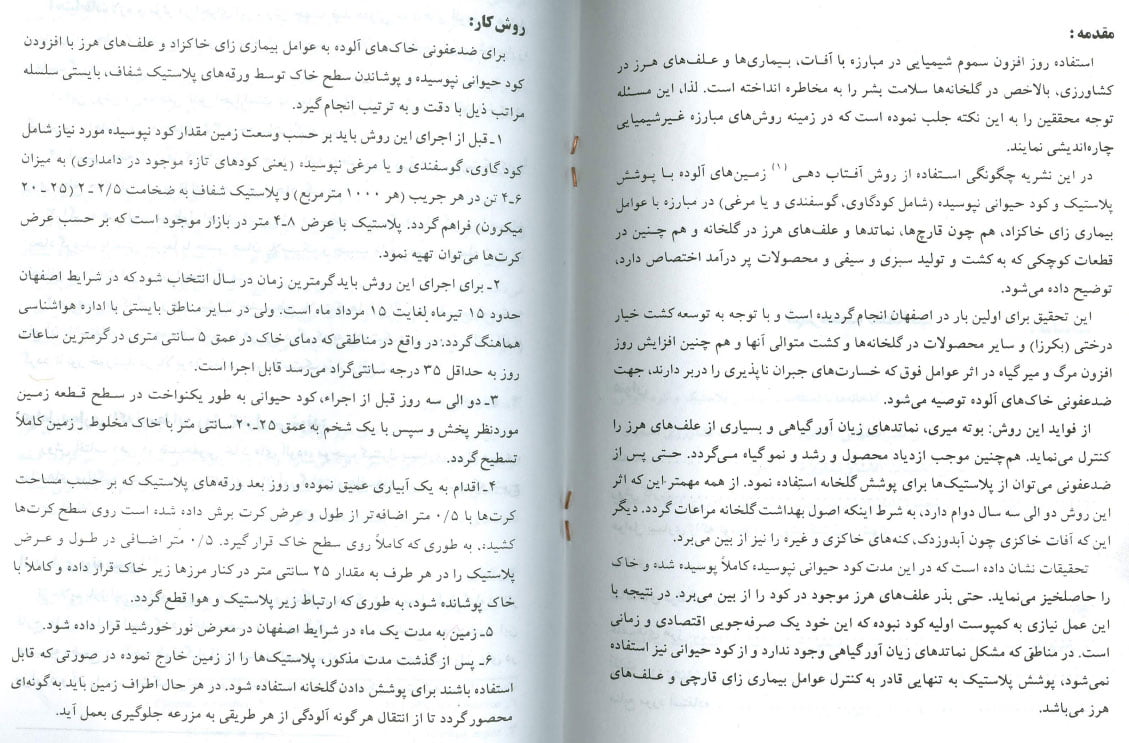 مقدمه :
استفاده روز افزون سموم شیمیایی در مبارزه با آفات، بیماری‌ها و علف‌های هرز در
کشاورزی، بالاخص در گلخانه‌ها سلامت بشر را به مخاطره انداخته است. لذا، این مسئله
توجه محققین را به این نکته جلب نموده است که در زمینه روش‌های مبارزه غیرشیمیایی
چاره‌اندیشی نمایند.
در این نشریه چگونگی استفاده از روش آفتاب دهی (۱) زمین‌های آلوده با پوشش
پلاستیک و کود حیوانی نپوسیده (شامل کودگاوی، گوسفندی و یا مرغی) در مبارزه با عوامل
بیماری زای خاکزاد، هم چون قارچ‌ها، نماتدها و علف‌های هرز در گلخانه و هم چنین در
قطعات کوچکی که به کشت و تولید سبزی و سیفی و محصولات پر درآمد اختصاص دارد،
توضیح داده می‌شود.
این تحقیق برای اولین بار در اصفهان انجام گردیده است و با توجه به توسعه کشت خیار
درختی (بکرزا) و سایر محصولات در گلخانه‌ها و کشت متوالی آنها و هم چنین افزایش روز
افزون مرگ و میر گیاه در اثر عوامل فوق که خسارت‌های جبران ناپذیری را دربر دارند، جهت
ضدعفونی خاک‌های آلوده توصیه می‌شود.
از فواید این روش: بوته میری، نماتدهای زیان آور گیاهی و بسیاری از علف‌های هرز را
کنترل می‌نماید. هم‌چنین موجب ازدیاد محصول و رشد و نمو گیاه می‌گردد. حتی پس از
ضدعفونی می‌توان از پلاستیک‌ها برای پوشش گلخانه استفاده نمود. از همه مهمتر این که اثر
این روش دو الی سه سال دوام دارد، به شرط اینکه اصول بهداشت گلخانه مراعات گردد. دیگر
این که آفات خاکزی چون آبدوزدک، کنه‌های خاکزی و غیره را نیز از بین می‌برد.
تحقیقات نشان داده است که در این مدت کود حیوانی نپوسیده کاملاً پوسیده شده و خاک
را حاصلخیز می‌نماید. حتی بذر علف‌های هرز موجود در کود را از بین می‌برد. در نتیجه با
این عمل نیازی به کمپوست اولیه کود نبوده که این خود یک صرفه‌جویی اقتصادی و زمانی
است. در مناطقی که مشکل نماتدهای زیان آور گیاهی وجود ندارد و از کود حیوانی نیز استفاده
نمی‌شود، پوشش پلاستیک به تنهایی قادر به کنترل عوامل بیماری زای قارچی و علف‌های
هرز می‌باشد.
روش کار:
برای ضدعفونی خاک‌های آلوده به عوامل بیماری زای خاکزاد و علف‌های هرز با افزودن
کود حیوانی نپوسیده و پوشاندن سطح خاک توسط ورقه‌های پلاستیک شفاف، بایستی سلسله
مراتب ذیل با دقت و به ترتیب انجام گیرد.
۱ـ قبل از اجرای این روش باید بر حسب وسعت زمین مقدار کود نپوسیده مورد نیاز شامل
کود گاوی، گوسفندی و یا مرغی نپوسیده (یعنی کودهای تازه موجود در دامداری) به میزان
۶ـ۴ تن در هر جریب (هر ۱۰۰۰ مترمربع) و پلاستیک شفاف به ضخامت ۲/۵ ـ ۲ (۲۵ ـ ۲۰
میکرون) فراهم گردد. پلاستیک با عرض ۸ـ۴ متر در بازار موجود است که بر حسب عرض
کرت‌ها می‌توان تهیه نمود.
۲ـ برای اجرای این روش باید گرمترین زمان در سال انتخاب شود که در شرایط اصفهان
حدود ۱۵ تیرماه لغایت ۱۵ مرداد ماه است. ولی در سایر مناطق بایستی با اداره هواشناسی
هماهنگ گردد. در واقع در مناطقی که دمای خاک در عمق ۵ سانتی متری در گرمترین ساعات
روز به حداقل ۳۵ درجه سانتی‌گراد می‌رسد قابل اجرا است.
۳ـ دو الی سه روز قبل از اجراء، کود حیوانی به طور یکنواخت در سطح قطعه زمین
موردنظر پخش و سپس با یک شخم به عمق ۲۵ـ۲۰ سانتی متر با خاک مخلوط ـ زمین کاملاً
تسطیح گردد.
۴ـ اقدام به یک آبیاری عمیق نموده و روز بعد ورقه‌های پلاستیک که بر حسب مساحت
کرت‌ها با ۰/۵ متر اضافه‌تر از طول و عرض کرت برش داده شده است روی سطح کرت‌ها
کشیده، به طوری که کاملاً روی سطح خاک قرار گیرد. ۰/۵ متر اضافی در طول و عرض
پلاستیک را در هر طرف به مقدار ۲۵ سانتی متر در کنار مرزها زیر خاک قرار داده و کاملاً با
خاک پوشانده شود، به طوری که ارتباط زیر پلاستیک و هوا قطع گردد.
۵ـ زمین به مدت یک ماه در شرایط اصفهان در معرض نور خورشید قرار داده شود.
۶ـ پس از گذشت مدت مذکور، پلاستیک‌ها را از زمین خارج نموده در صورتی که قابل
استفاده باشند برای پوشش دادن گلخانه استفاده شود. در هر حال اطراف زمین باید به گونه‌ای
محصور گردد تا از انتقال هر گونه آلودگی از هر طریقی به مزرعه جلوگیری بعمل آید.